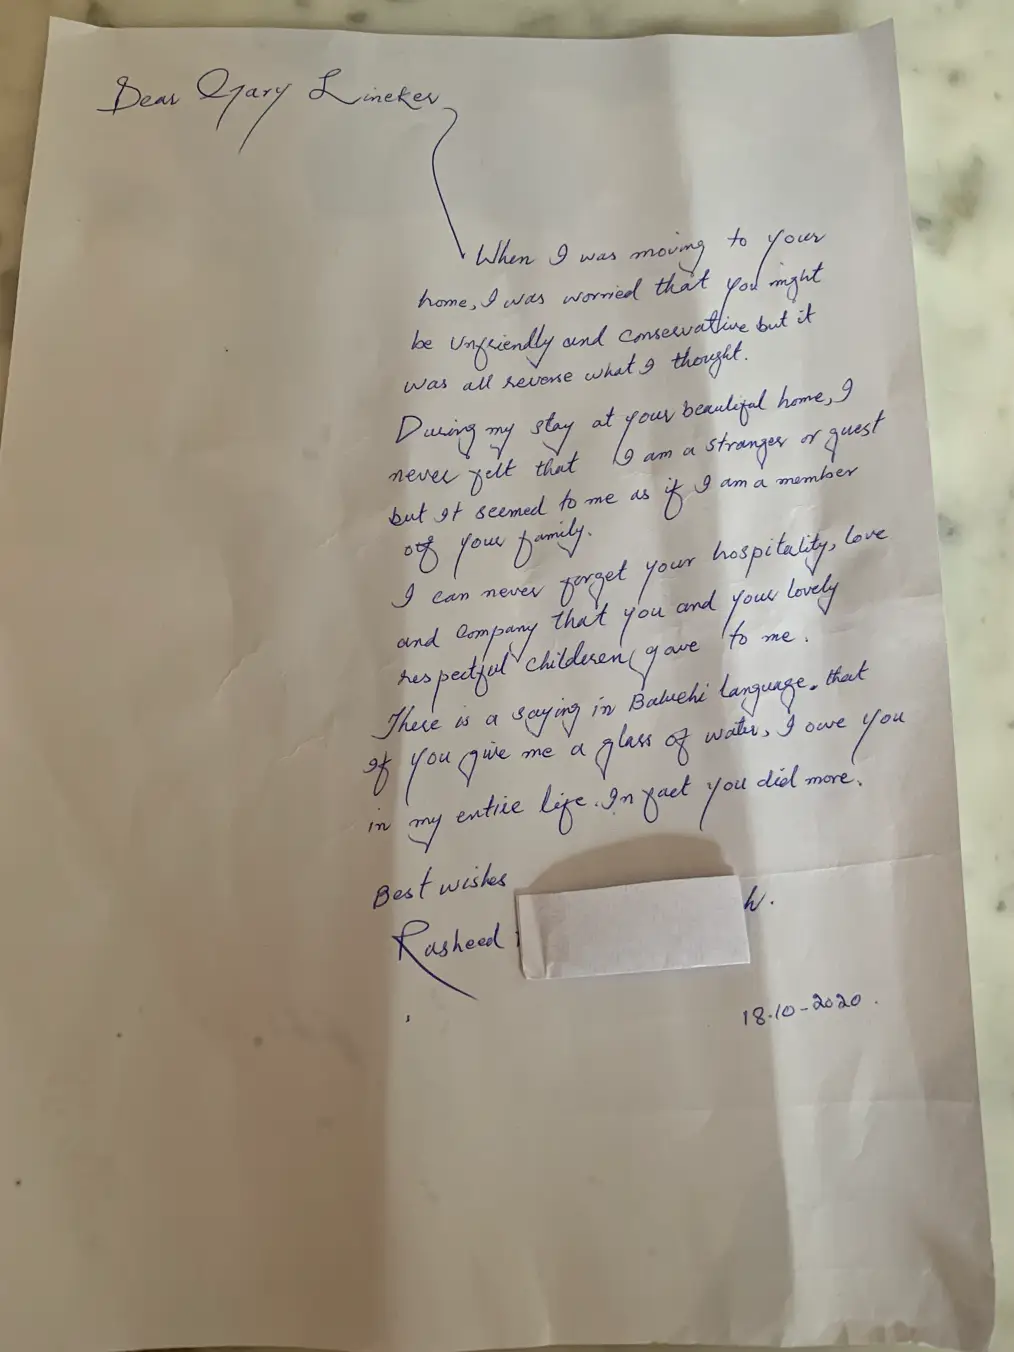 Dear Gary Lineker,
When I was moving to your
home, I was worried that you might
be unfriendly and conservative but it
was all reverse what I thought.
During my stay at your beautiful home, I
never felt that I am a stranger or guest
but It seemed to me as if I am a member
of your family.
I can never forget your hospitality, love
and Company that you and your lovely
respectful childeren gave to me.
There is a saying in Baluchi language. that
If you give me a glass of water, I owe you
in my entire life. In fact you did more.
Best wishes
Rasheed h.
18.10-2020.